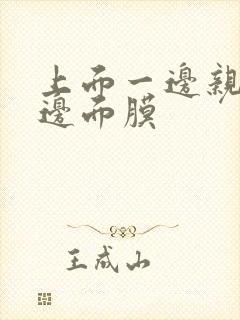 上而一邊親
邊而膜
王成山